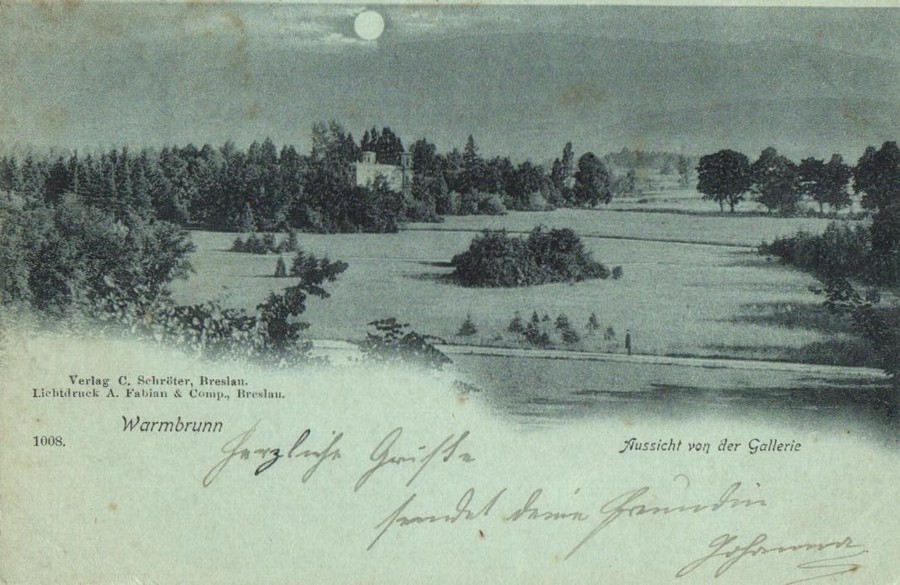 Verlag C. Schröter, Breslau.
Lichtdruck A. Fabian & Comp., Breslau.
Warmbrunn
1008.
Aussicht von der Gallerie
Herzliche Grüße
sendet deine Freundin
Johanna